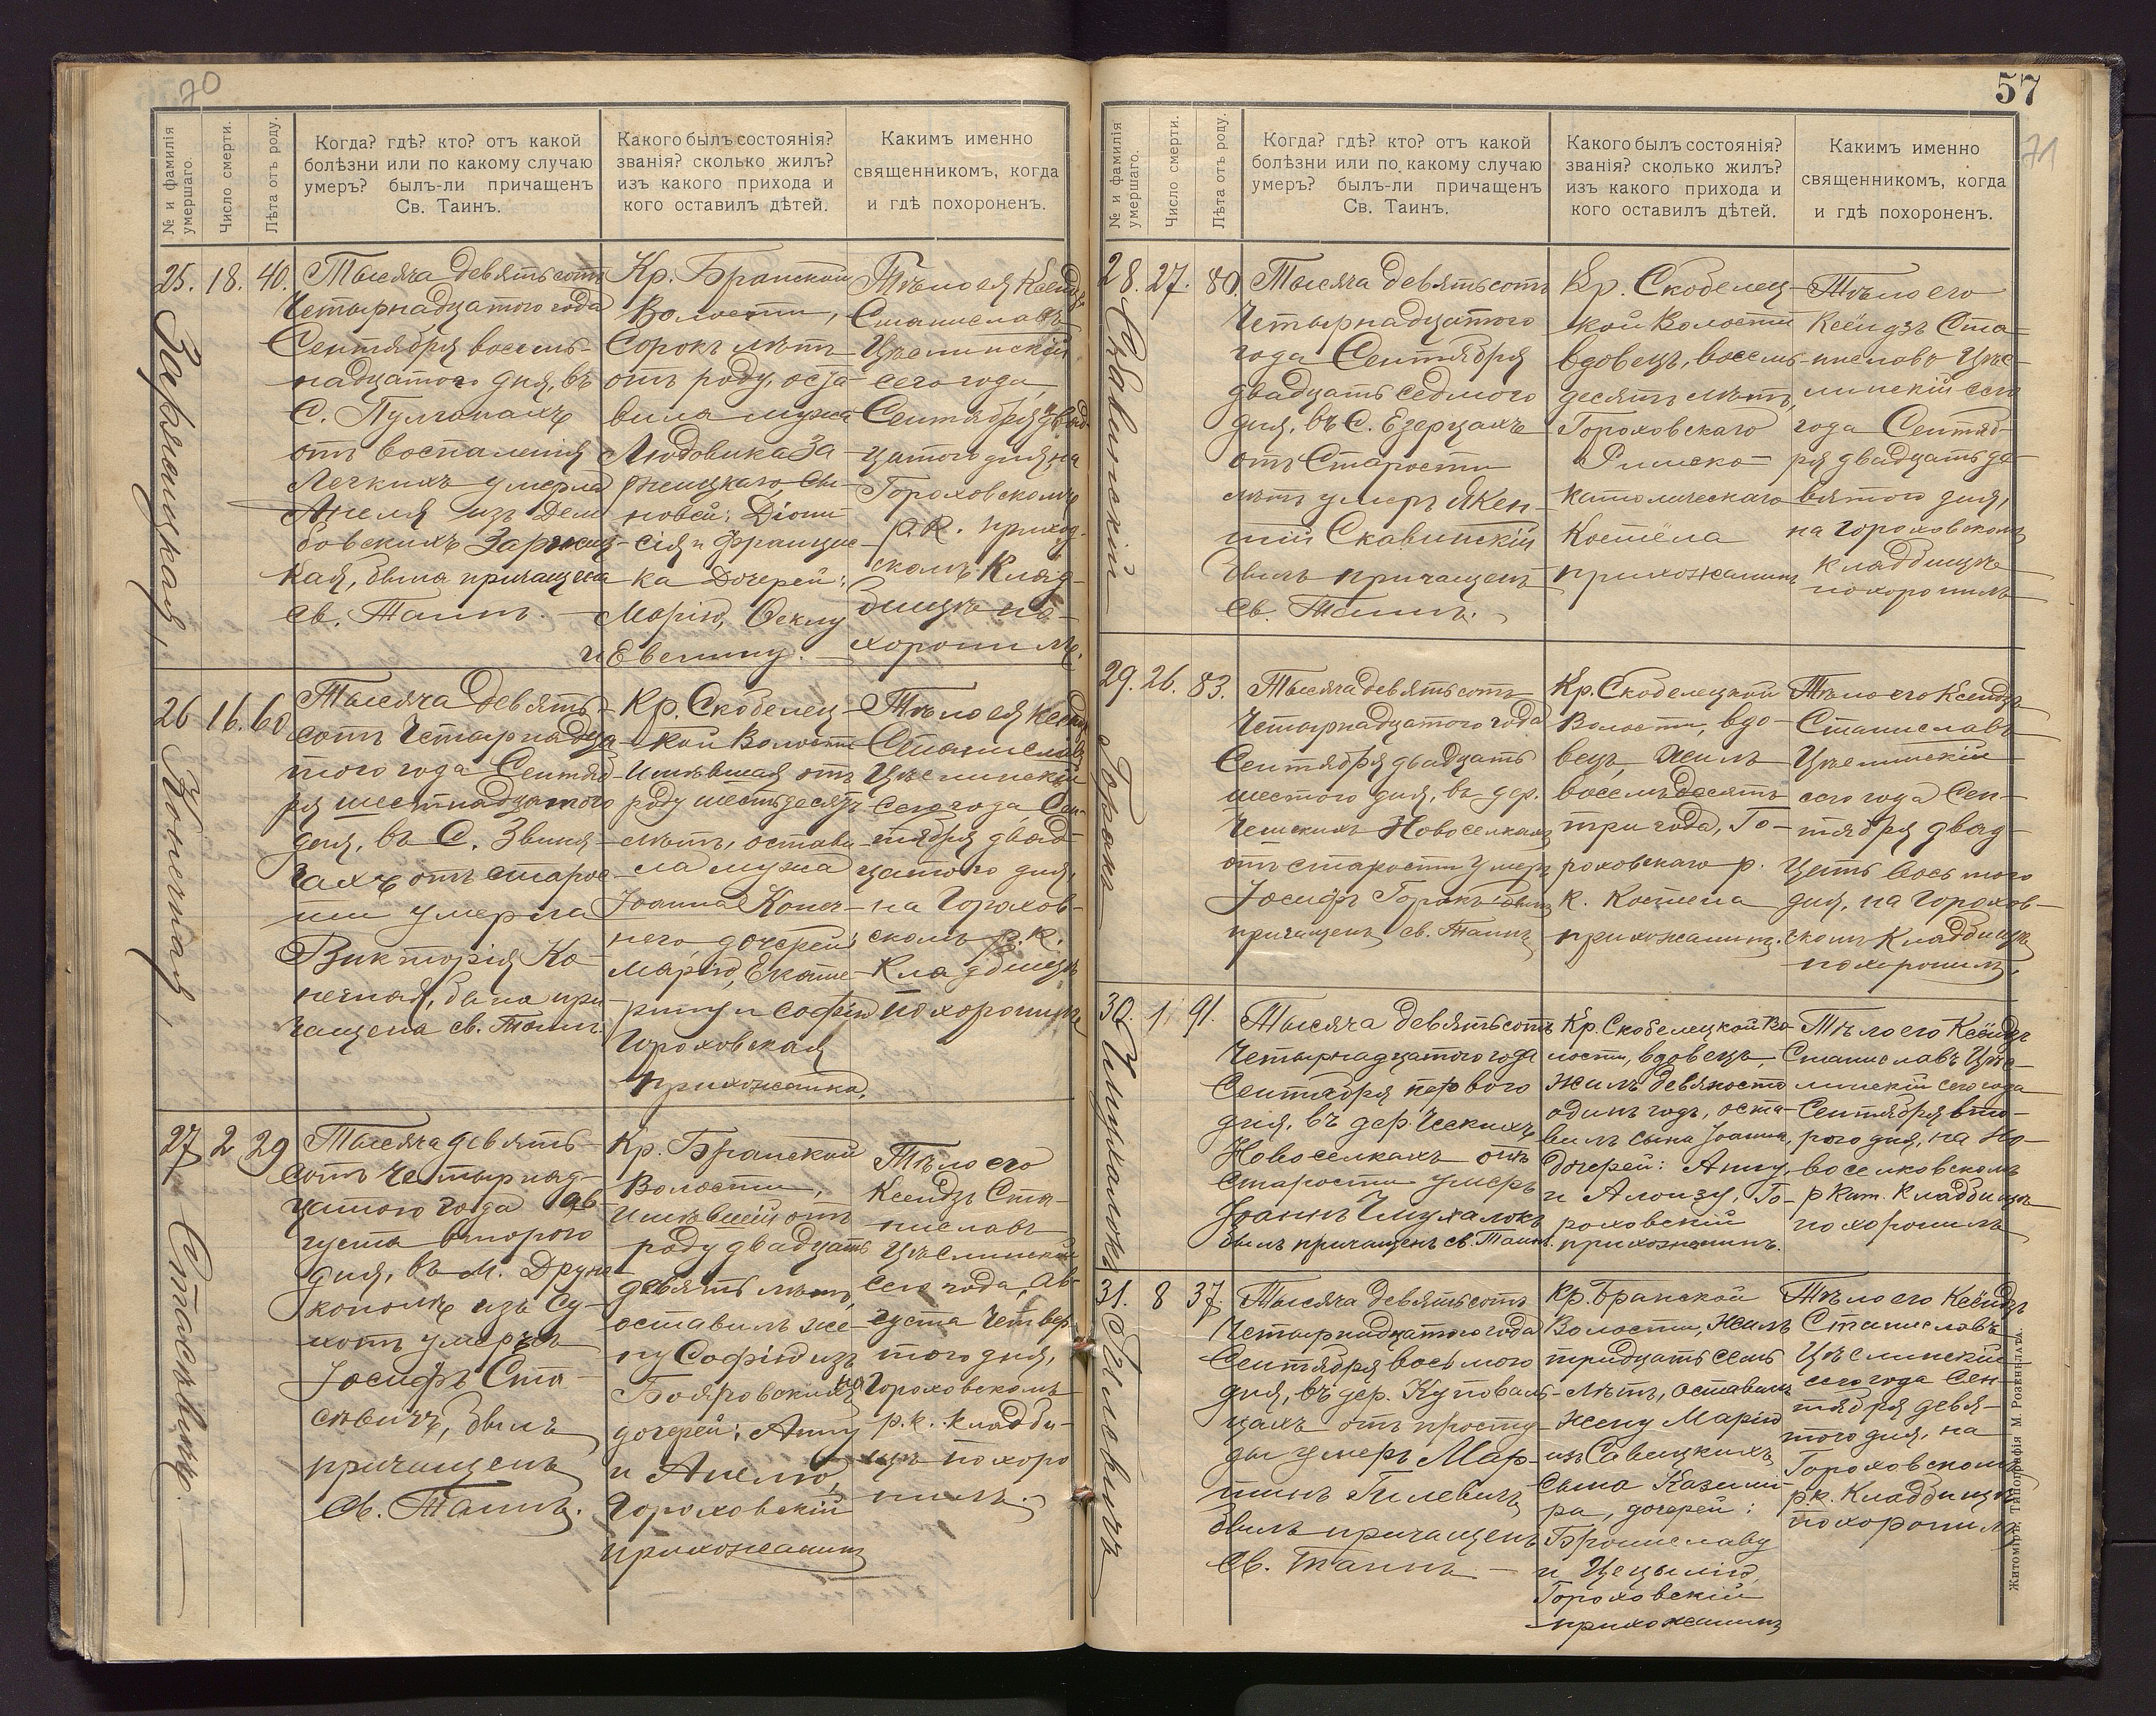 70
№ и фамилія умершаго.
Число смерти.
Лѣта отъ роду.
Когда? гдѣ? кто? отъ какой
болѣзни или по какому случаю
умеръ? былъ-ли причащенъ
Св. Таинъ.
Какого былъ состоянія?
званія? сколько жилъ?
изъ какого прихода и
кого оставилъ дѣтей.
Какимъ именно
священникомъ, когда
и гдѣ похороненъ.
25. 18. 40.
Тысяча девятьсотъ
Четырнадцатого года
Сентября восемь-
надцатого дня, въ
С. Пулгонахъ
отъ воспаленія
Легкихъ умерла
Анеля изъ Дем
бовскихъ Заржиц-
кая, была причащена
св. Таинъ.
Кр. Бранской
Волости,
Сорокъ лѣтъ
отъ роду, оста-
вила мужа
Людовика За
ржицкаго, сы-
новей: Діони
сія и Францис-
ка Дочерей:
Марію, Ѳеклу
и Евелину.
Тѣло ея Ксендзъ
Станиславъ
Цѣслинскій
сего года
Сентября двад-
цатого дня, на
Гороховскомъ
р.к. приход-
скомъ Клад-
бищѣ по-
хоронилъ.
26 16. 60
Конечная
Тысяча девять-
сотъ Четырнадца-
того года Сентяб-
ря шестнадцатого
дня, въ С. Звиня-
чахъ отъ старос-
ти умерла
Викторія Ко-
нечная, была при-
чащена св. Таинъ.
Кр. Скобелец-
кой Волости
имѣвшая отъ
роду шестьдесятъ
лѣтъ, остави-
ла мужа
Іоанна Конеч-
него, дочерей:
Марію, Екате-
рину и Софію
Гороховская
прихожанка.
Тѣло ея Ксендзъ
Станиславъ
Цѣслинскій
Сего года Сен-
тября двад-
цатого дня,
на Горохов-
скомъ р.к.
Кладбищѣ
похоронилъ
27 2 29
Стасѣвичъ.
Тысяча девять-
сотъ четырнад-
цатого года Ав-
густа второго
дня, въ м. Друж-
кополѣ изъ Су-
хотъ умеръ
Іосифъ Ста-
сѣвичъ, былъ
причащенъ
Св. Таинъ.
Кр. Бранской
Волости,
имѣвшій отъ
роду двадцать
девять лѣтъ,
оставилъ же-
ну Софію изъ
Бояровскихъ
дочерей: Анну
и Анелю,
Гороховскій
прихожанинъ
Тѣло его
Ксендзъ Ста-
ниславъ
Цѣслинскій
сего года, Ав-
густа Четвер-
того дня,
на Гороховскомъ
р.к. кладби-
щѣ похоро
нилъ.
57
71
№ и фамилія умершаго.
Число смерти.
Лѣта отъ роду.
Когда? гдѣ? кто? отъ какой
болѣзни или по какому случаю
умеръ? былъ-ли причащенъ
Св. Таинъ.
Какого былъ состоянія?
званія? сколько жилъ?
изъ какого прихода и
кого оставилъ дѣтей.
Какимъ именно
священникомъ, когда
и гдѣ похороненъ.
28. 27. 80.
Скавинскій
Тысяча девятьсотъ
Четырнадцатого
года Сентября
двадцать седмого
дня, въ С. Езерцахъ
отъ Старости
лѣтъ умеръ Якен-
тій Скавинскій
былъ причащенъ
Св. Таинъ.
Кр. Скобелец-
кой Волости
вдовецъ, восемь-
десятъ лѣтъ,
Гороховскаго
Римско-
католическаго
Костёла
прихожанинъ
Тѣло его
Ксёндзъ Ста-
ниславъ Цѣс-
линскій сего
года Сентяб-
ря двадцать де-
вятого дня,
на Гороховскомъ
кладбищѣ
похоронилъ
29. 26. 83.
Горакъ
Тысяча девятьсотъ
Четырнадцатого года
Сентября двадцать
шестого дня, въ дер.
Чешскихъ Новоселкахъ
отъ старости умеръ
Іосифъ Горакъ былъ
причащенъ св. Таинъ
Кр. Скобелецкой
Волости, вдо-
вецъ, жилъ
восемьдесятъ
три года, Го-
роховскаго р.
к. Костела
прихожанинъ.
Тѣло его Ксендзъ
Станиславъ
Цѣслинскій
сего года Сен-
тября двад-
цать восьмого
дня, на Горохов-
скомъ Кладбищѣ
похоронилъ.
30. 1. 91.
Тысяча девятьсотъ
Четырнадцатого года
Сентября первого
дня, въ дер. Чешскихъ
Новоселкахъ отъ
старости умеръ
Іоаннъ Чмухалокъ
былъ причащенъ св. Таинъ.
Кр. Скобелецкой Во-
лости, вдовецъ,
жилъ девяносто
одинъ годъ, оста-
вилъ сына Іоанна,
дочерей: Анну,
и Алоизу, Го-
роховскій
прихожанинъ.
Тѣло его Ксёндзъ
Станиславъ Цѣс-
линскій сего года
Сентября вто-
рого дня, на Но-
воселковскомъ
р кат. Кладбищѣ
похоронилъ
31. 8 37.
Гилевичъ
Тысяча девятьсотъ
Четырнадцатого года
Сентября восьмого
дня, въ дер. Куповаль-
цахъ отъ просту-
ды умеръ Мар-
тинъ Гилевичъ
былъ причащенъ
Св. Таинъ.
Кр. Бранской
Волости, жилъ
тридцать семь
лѣтъ, оставилъ
жену Марію
изъ Савицкихъ
сына Казими-
ра, дочерей:
Брониславу
и Цецылію,
Гороховскій
прихожанинъ
Тѣло его Ксёндзъ
Станиславъ
Цѣслинскій
сего года Сен-
тября девя-
того дня, на
Гороховскомъ
р.к. Кладбищѣ
похоронилъ
Житоміръ. Типографія М. Розенблата.